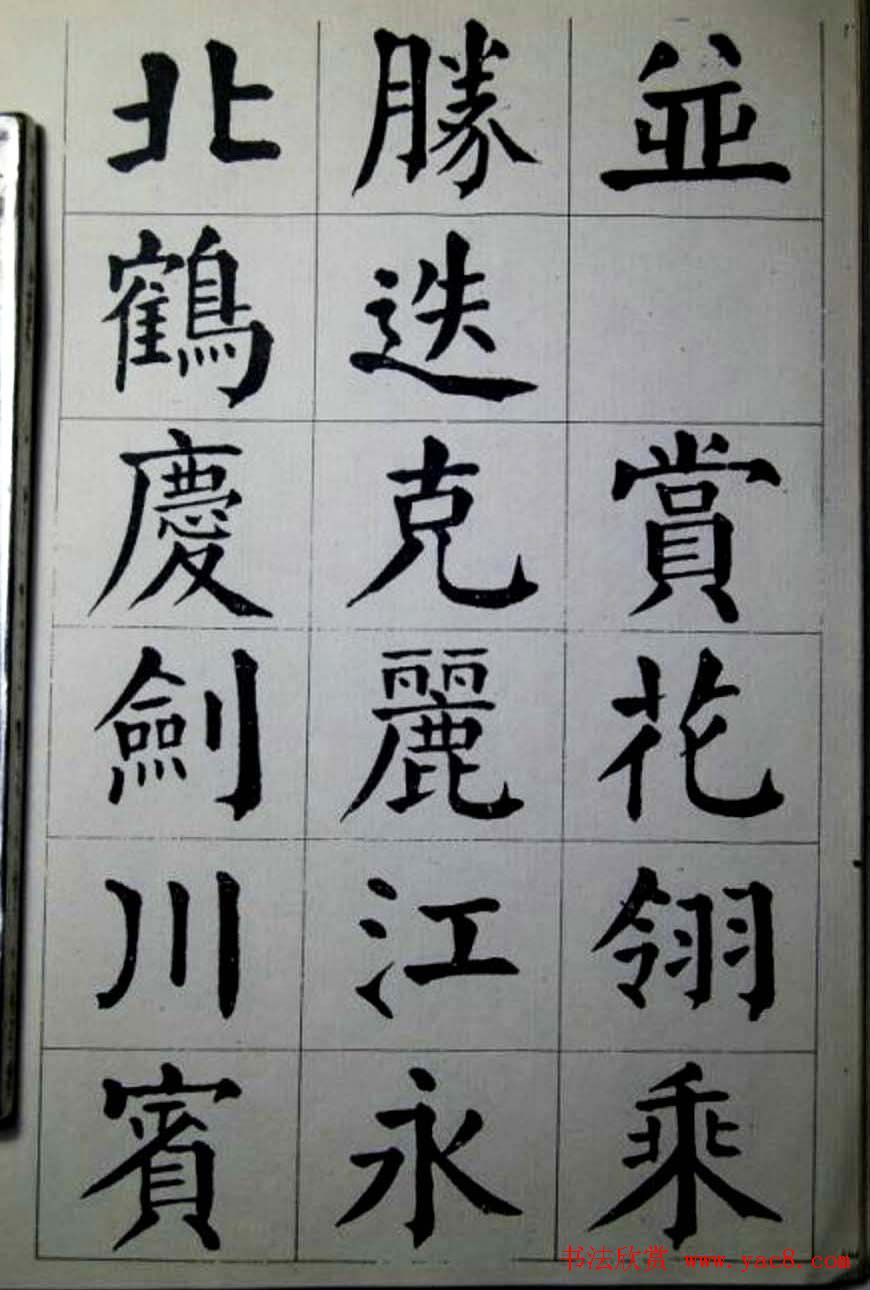 並 賞花翎乘
勝迭克麗江永
北鶴慶劍川賓
书法欣赏 www.yac8.com